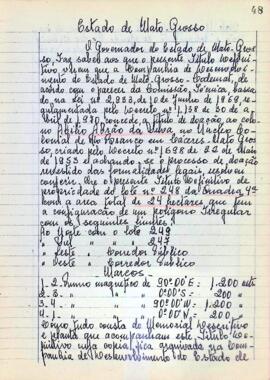 48
Estado de Mato-Grosso
O Governador do Estado de Mato-Grosso,
Faz saber aos que o presente Título Defini-
tivo virem que a Companhia de Desenvolvi-
mento do Estado de Mato-Grosso - Codemat, de
acordo com o parecer da Comissão Técnica, basea-
da na lei nº 2,833, de 10 de Junho de 1.968, re-
gulamentada pelo Decreto nº 1.138 de 20 de A-
bril de 1.970, concede a título de doação, ao colo-
no Abrão da Silva, no Núcleo Co-
lonial de Rio Branco em Cáceres-Mato-Gros-
so, criado pelo Decreto nº 1.598 de 22 de Maio
de 1.953 e achando-se o processo de doação
revestido das formalidades legais, resolveu
conferir-lhe o presente Título Definitivo de
propriedade do lote nº 248 da Quadra, 4ª
com a área total de 24 hectares, que tem
a configuração de um polígono irregular
com os seguintes limites:
Ao Norte com o lote 249
" Sul " " " 247
" Leste " Corredor Público
" Oeste " Corredor Público
Marcos-
1-2-Rumo magnético de 90º00'E: 1.200 mts
2-3- " " " 0º00'S = 200 "
3-4- " " " 90º00'W: 1.200 "
4-1- " " " 0º00' : 200 "
Como tudo consta do Memorial Descritivo
e planta que acompanham este Título De-
finitivo
panhia de Desenvolvimento do Estado de